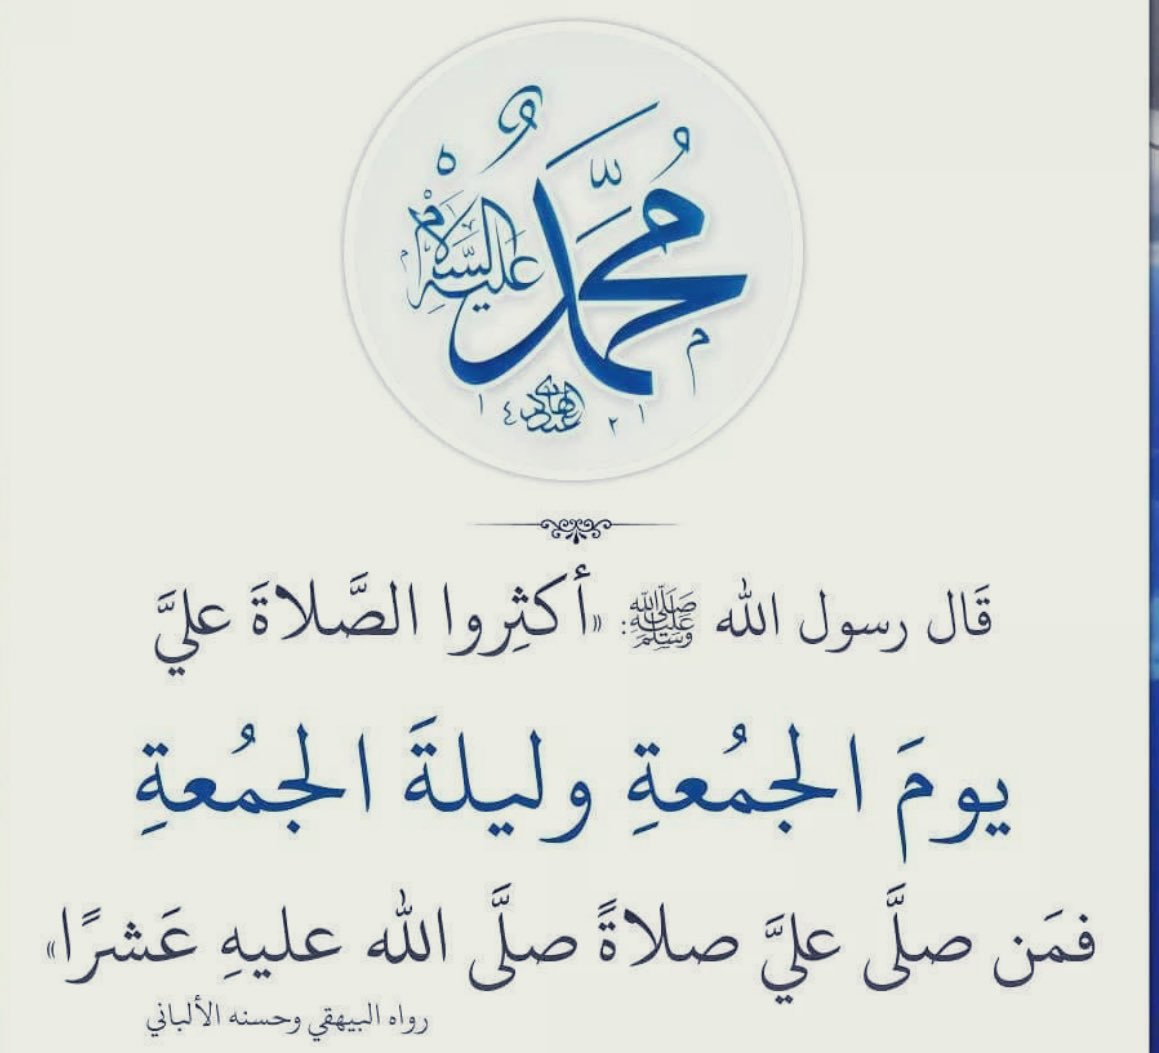 محمد
عليه السلام
قَال رسول الله ﷺ: «أكثِروا الصَّلاةَ عليَّ
يومَ الجمُعةِ وليلةَ الجمُعةِ
فمَن صلَّى عليَّ صلاةً صلَّى الله عليهِ عَشرًا»
رواه البيهقي وحسنه الألباني